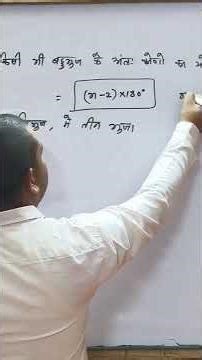 किसी भी बहुभुज के अंतः कोणों का
= (n-2)×180°
में तीन भुजा